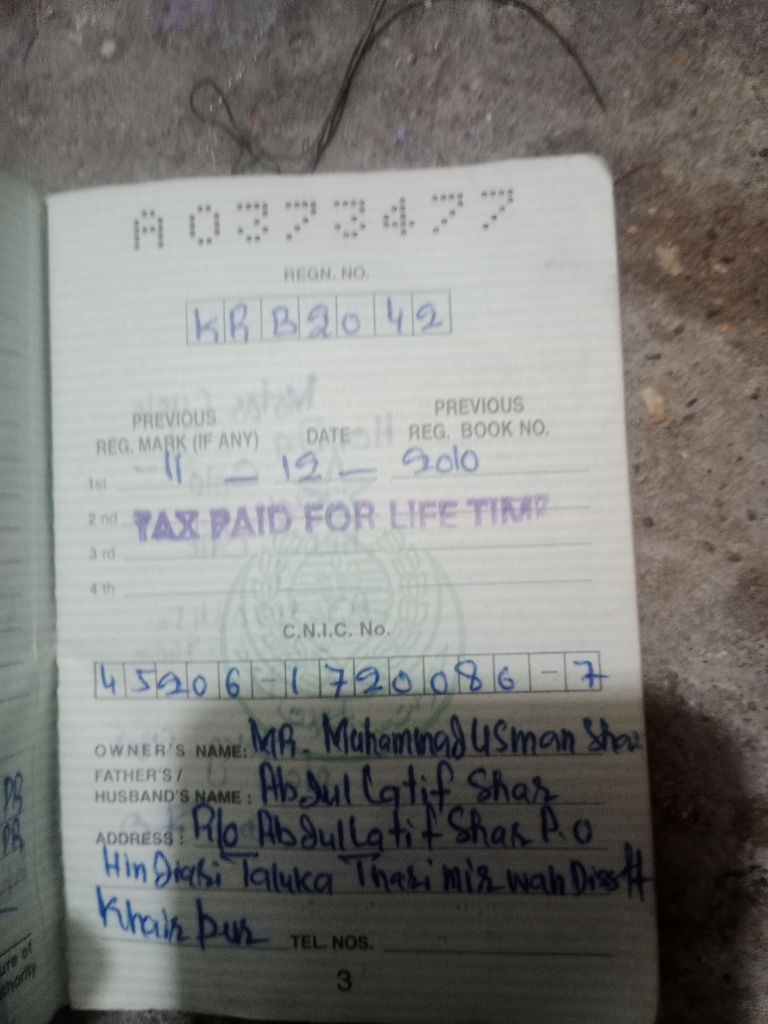 A0373477
REGN. NO.
KRB2042
PREVIOUS REG. MARK (IF ANY) DATE PREVIOUS REG. BOOK NO.
1st 11 – 12 – 2010
2nd TAX PAID FOR LIFE TIME
3rd
4th
C.N.I.C. No.
45206-1720086-7
OWNER'S NAME: MR. Muhammad Usman Shar
FATHER'S /
HUSBAND'S NAME: Abdul Latif Shar
ADDRESS: R/o Abdul Latif Shar P.O
Hindiari Taluka Thari mir wah Distt
Khairpur TEL. NOS.
3
PR
PR
ure of
thority